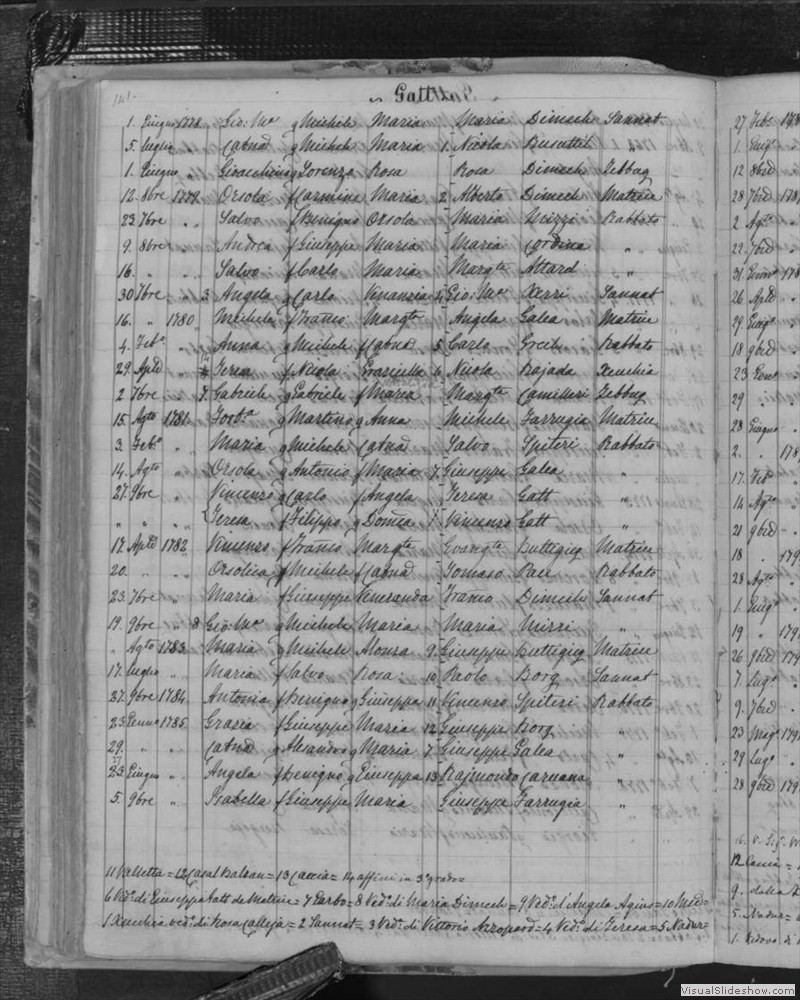 141.
Gatt
1. Giugno 1778 Gio: Ma q Michele Maria Maria Dimech Sannat
5. Luglio " Catna q Michele Maria 1. Nicola Busuttil
1. Giugno " Gioachino q Lorenzo Rosa Rosa Dimech Zebbug
12. 8bre 1779 Orsola f Carmine Maria 2. Alberto Dimech Matrice
23. 7bre " Salvo f Benigno Orsola Maria Mizzi Rabbato
9. 8bre " Andrea f Giuseppe Maria Maria Cordina "
16. " " Salvo f Carlo Maria Margta Attard "
30 7bre " 3. Angelo q Carlo Venanzia 4. Gio: Ma Xerri Sannat
16. " 1780 Michele f Franco Margta Angela Galea Matrice
4. Feb. " Anna q Michele f Catna 5. Carlo Grech Rabbato
29. Aple " Teresa f Nicola Graziulla 6. Nicola Bajada Xeuchia
2 7bre " 7. Gabriele q Gabriele f Maria Margta Camilleri Zebbug
15. Agto 1781 q Martino q Anna Michele Farrugia Matrice
3. Feb. " Maria q Michele Catna Salvo Spiteri Rabbato
14. Agto " Orsola q Antonio f Maria 7. Giuseppe Galea "
27. 9bre " Vincenzo q Carlo f Angela Teresa Gatt "
" " " Teresa f Filippo q Domca Vincenzo Gatt "
17. Aple 1782 Vincenzo f Franco Margta Evangta Buttigieg Matrice
20. " " Orsolica f Michele f Catna Tomaso Pace Rabbato
23. 7bre " Maria f Giuseppe Veneranda Franco Dimech Sannat
19. 9bre " 8 Gio: Ma q Michele Maria Maria Mizzi "
" Agto 1783 Maria q Michele Alonza 9. Giuseppe Buttigieg Matrice
17. Luglio " Maria f Salvo Rosa 10. Paolo Borg Sannat
27. 9bre 1784 Antonia f Benigno q Giuseppa 11. Vincenzo Spiteri Rabbato
23. Genno 1785 Grazia f Giuseppe Maria 12. Giuseppe Borg "
29. " " Catna q Alesandro q Maria 7 Giuseppe Galea "
23 Giugno " Angela f Benigno q Giuseppa 13. Rajmondo Caruana "
5. 9bre " Isabella f Giuseppe Maria Giuseppe Farrugia "
11 Valletta = 12 Casal Balzan = 13 Caccia = 14 affini in 3° grado =
6 Ved: di Giuseppa Gatt da Matrice = 7 Garbo = 8 Ved: di Maria Dimech = 9 Ved: d'Angela Agius = 10 Med =
1 Xeuchia ved: di Rosa Calleja = 2 Sannat = 3 Ved: di Vittoria Azzopardi = 4 Ved: di Teresa = 5 Nadur =
27 Feb.
1. Giug.
12 8bre
28 7bre
2. Agto
22. 7bre
31 Genn.
26 Aple
29 Giug.
18 9bre
23 Genn.
29 "
28 Giugno
2. "
17. Feb.
14 Agto
21 9bre
18 "
28 Agto
1. Giug.
19 "
26 9bre
7. Lug.
9. 7bre
23 Mag.
29 Lug.
28 9bre
12 Caccia =
9. della
5. Nadur =
1. Vedova di
VisualSlideshow.com